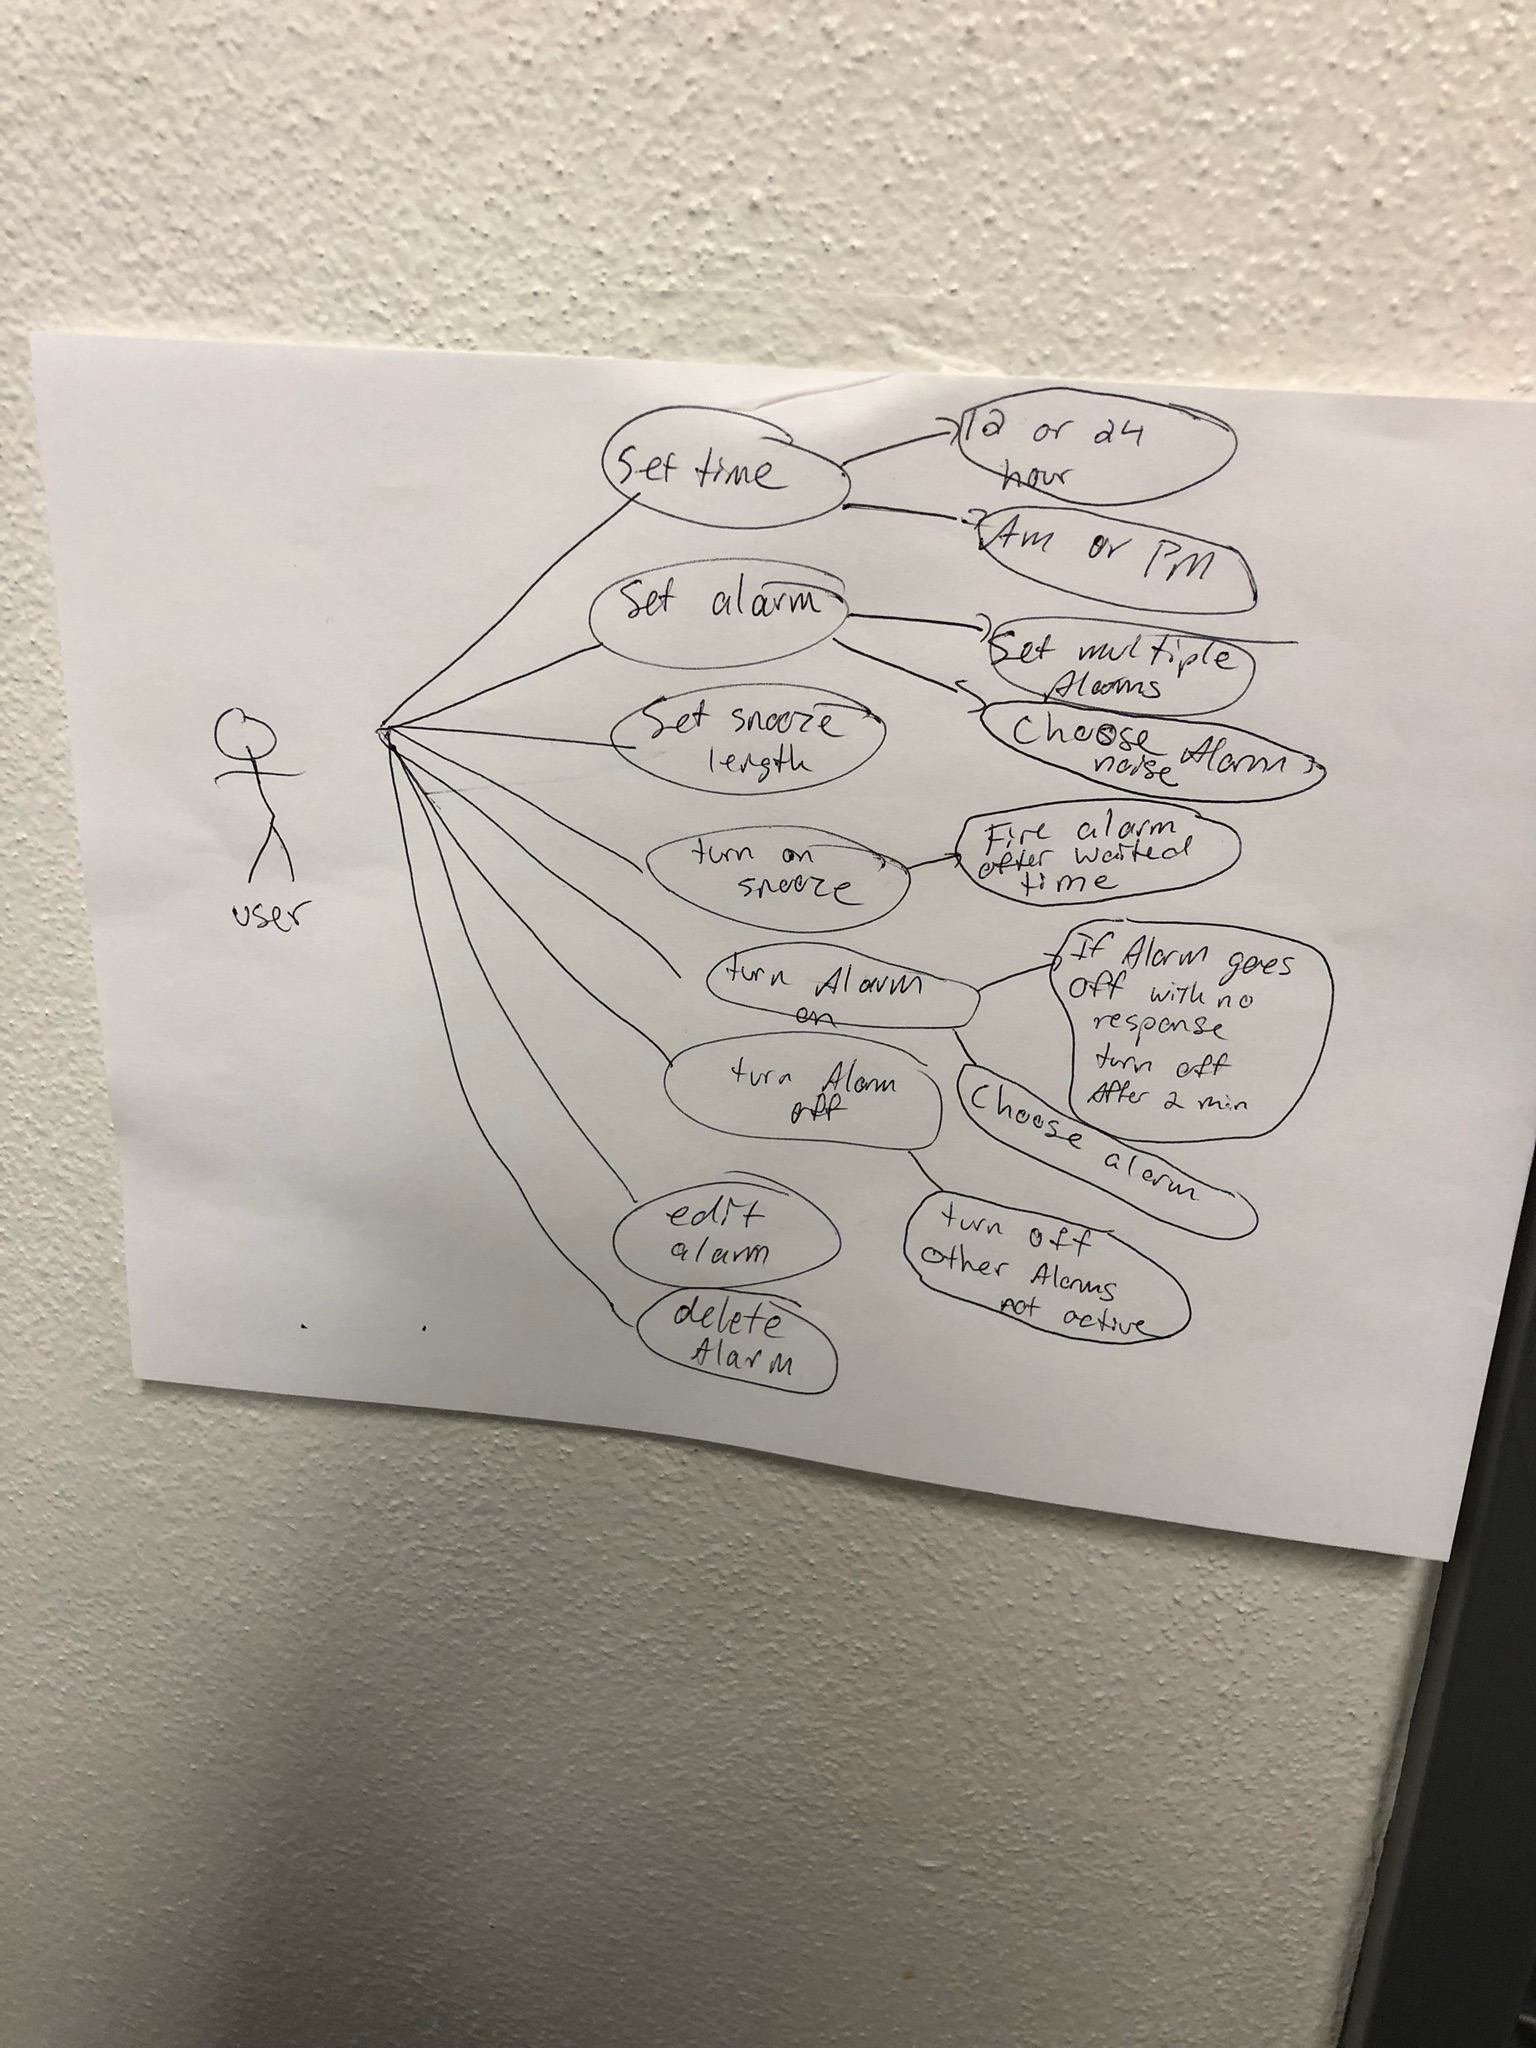 Set time
12 or 24
hour
Am or PM
Set alarm
Set multiple
Alarms
Choose Alarm
noise
Set snooze
length
turn on
snooze
Fire alarm
after waited
time
turn Alarm
on
If Alarm goes
off with no
response
turn off
After 2 min
Choose alarm
turn Alarm
off
turn off
other Alarms
not active
edit
alarm
delete
Alarm
user